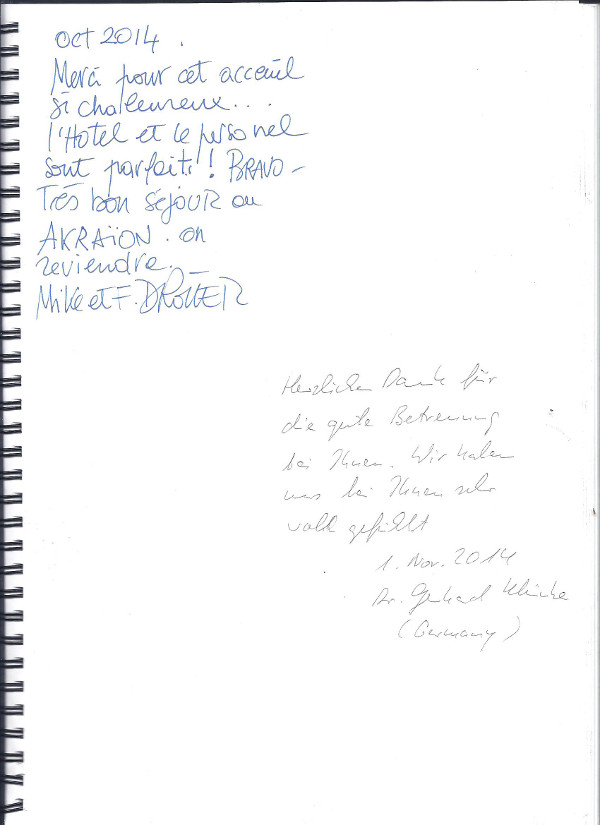 oct 2014.
Merci pour cet acceuil
si chaleureux...
l'Hotel et le personel
sont parfaits! BRAVO -
Très bon SÉJOUR au
AKRAÏON. on
reviendra.
Mike et F.
Herzlichen Dank für
die gute Betreuung
bei Ihnen. Wir haben
uns bei Ihnen sehr
wohl gefühlt
1. Nov. 2014
Dr. Gerhard
(Germany)